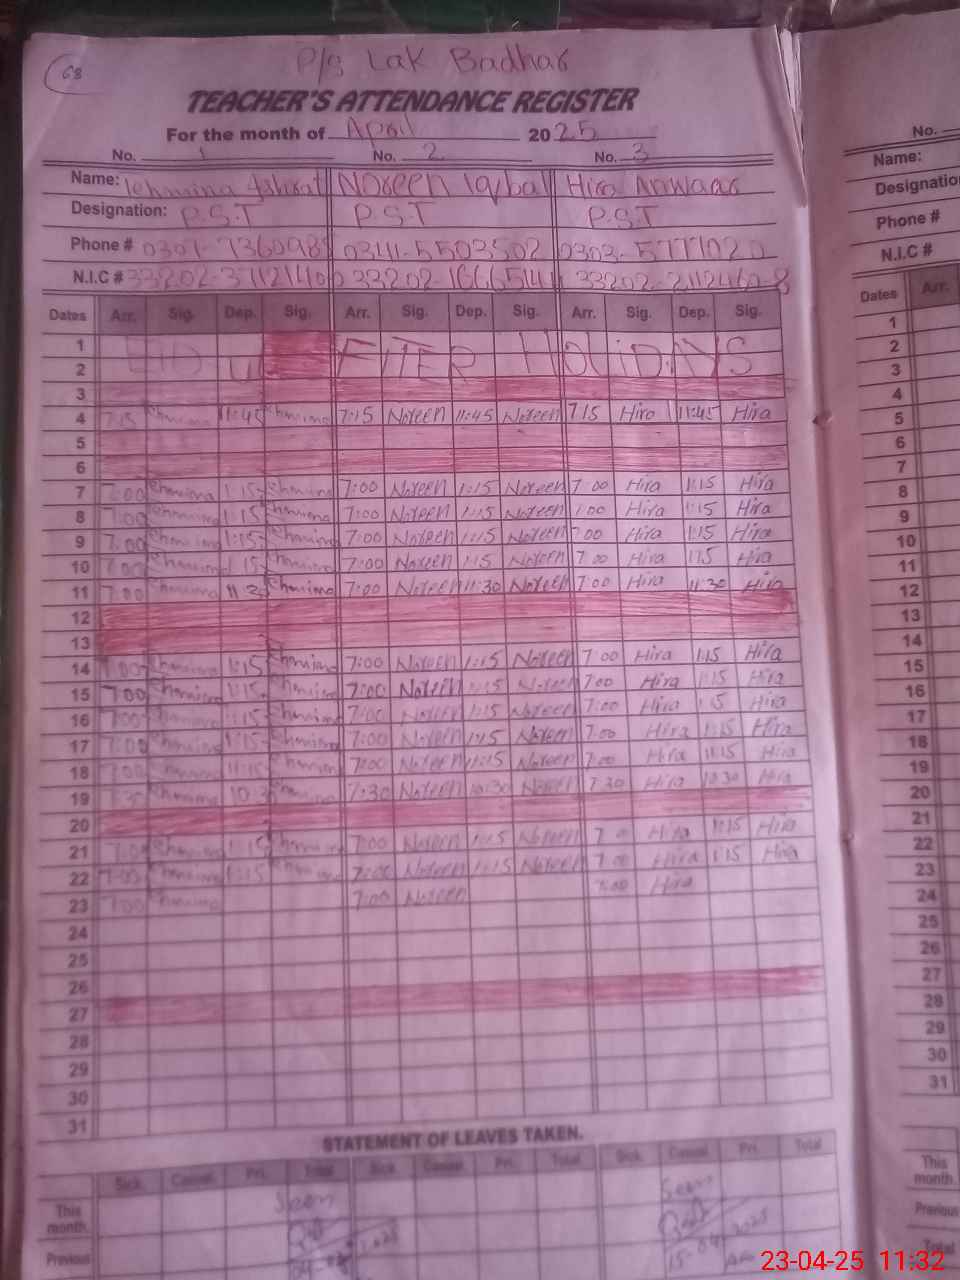 68
P/s Lak Badhar
TEACHER'S ATTENDANCE REGISTER
For the month of April 2025
No. 1 No. 2 No. 3 No.
Name: Tehmina Ishrat Noreen Iqbal Hira Anwaar Name:
Designation: P.S.T P.S.T P.S.T Designation
Phone # 0301-7360985 0341-5503502 0303-5777020 Phone #
N.I.C # 33202- 33202- 33202- N.I.C #
Dates Arr. Sig. Dep. Sig. Arr. Sig. Dep. Sig. Arr. Sig. Dep. Sig. Dates Arr.
1 EID U FITER HOLIDAYS 1
2 2
3 3
4 7:15 Tehmina 11:45 Tehmina 7:15 Noreen 11:45 Noreen 7:15 Hira 11:45 Hira 4
5 5
6 6
7 7:00 Tehmina 1:15 Tehmina 7:00 Noreen 1:15 Noreen 7:00 Hira 1:15 Hira 7
8 7:00 Tehmina 1:15 Tehmina 7:00 Noreen 1:15 Noreen 7:00 Hira 1:15 Hira 8
9 7:00 Tehmina 1:15 Tehmina 7:00 Noreen 1:15 Noreen 7:00 Hira 1:15 Hira 9
10 7:00 Tehmina 1:15 Tehmina 7:00 Noreen 1:15 Noreen 7:00 Hira 1:15 Hira 10
11 7:00 Tehmina 11:30 Tehmina 7:00 Noreen 11:30 Noreen 7:00 Hira 11:30 Hira 11
12 12
13 13
14 7:00 Tehmina 1:15 Tehmina 7:00 Noreen 1:15 Noreen 7:00 Hira 1:15 Hira 14
15 7:00 Tehmina 1:15 Tehmina 7:00 Noreen 1:15 Noreen 7:00 Hira 1:15 Hira 15
16 7:00 Tehmina 1:15 Tehmina 7:00 Noreen 1:15 Noreen 7:00 Hira 1:15 Hira 16
17 7:00 Tehmina 1:15 Tehmina 7:00 Noreen 1:15 Noreen 7:00 Hira 1:15 Hira 17
18 7:00 Tehmina 11:15 Tehmina 7:00 Noreen 11:15 Noreen 7:00 Hira 11:15 Hira 18
19 7:30 Tehmina 10:30 Tehmina 7:30 Noreen 10:30 Noreen 7:30 Hira 10:30 Hira 19
20 20
21 7:00 Tehmina 1:15 Tehmina 7:00 Noreen 1:15 Noreen 7:00 Hira 1:15 Hira 21
22 7:00 Tehmina 1:15 Tehmina 7:00 Noreen 1:15 Noreen 7:00 Hira 1:15 Hira 22
23 7:00 Tehmina 7:00 Noreen 7:00 Hira 23
24 24
25 25
26 26
27 27
28 28
29 29
30 30
31 31
STATEMENT OF LEAVES TAKEN.
Sick. Casual. Pri. Total Sick. Casual. Pri. Total Sick. Casual. Pri. Total
This month. Seen Seen This month.
Previous 15-04 Previous
Total
23-04-25 11:32